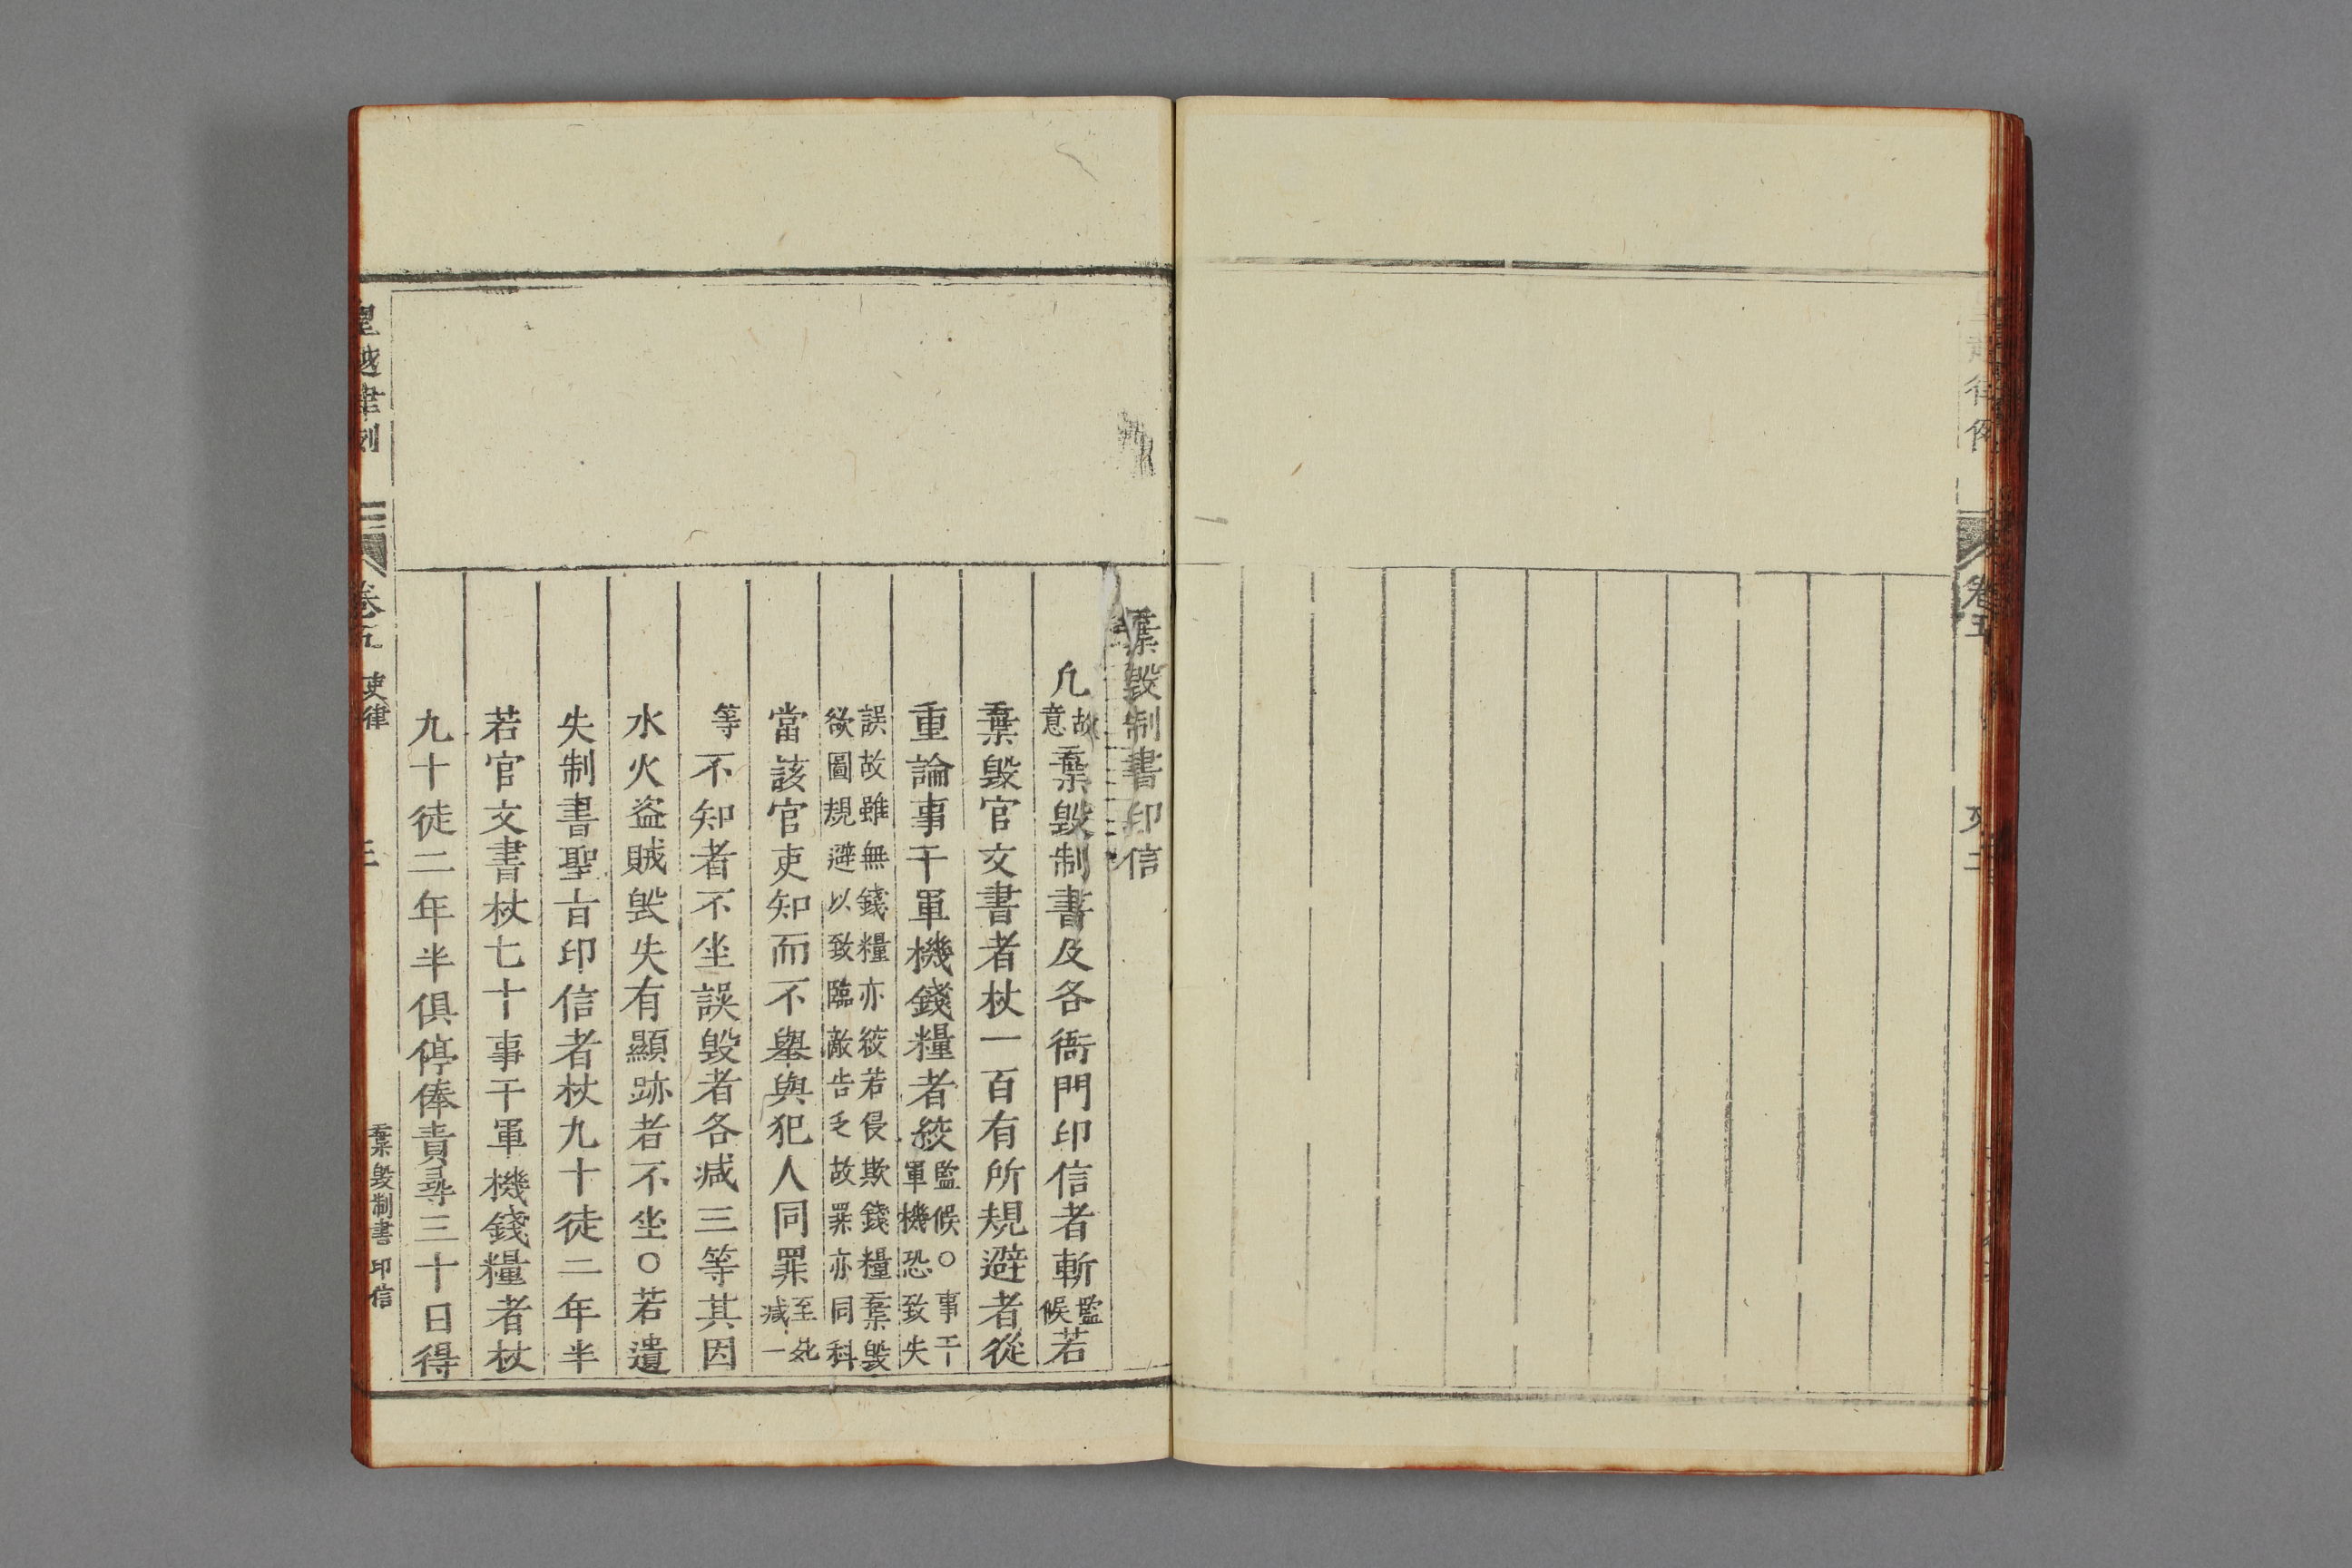 卷五
棄毀制書印信
凢故意棄毀制書及各衙門印信者斬監候若
棄毀官文書者杖一百有所規避者從
重論事干軍機錢糧者絞監候○事干軍機恐致失
誤故雖無錢糧亦絞若侵欺錢糧棄毀欲圖規避以致臨敵告乏故罪亦同科
當該官吏知而不舉與犯人同罪至死减一
等不知者不坐誤毀者各减三等其因
水火盗賊毀失有顯跡者不坐○若遺
失制書聖旨印信者杖九十徒二年半
若官文書杖七十事干軍機錢糧者杖
九十徒二年半俱停俸責尋三十日得
皇越律例
卷五
吏律
棄毀制書印信